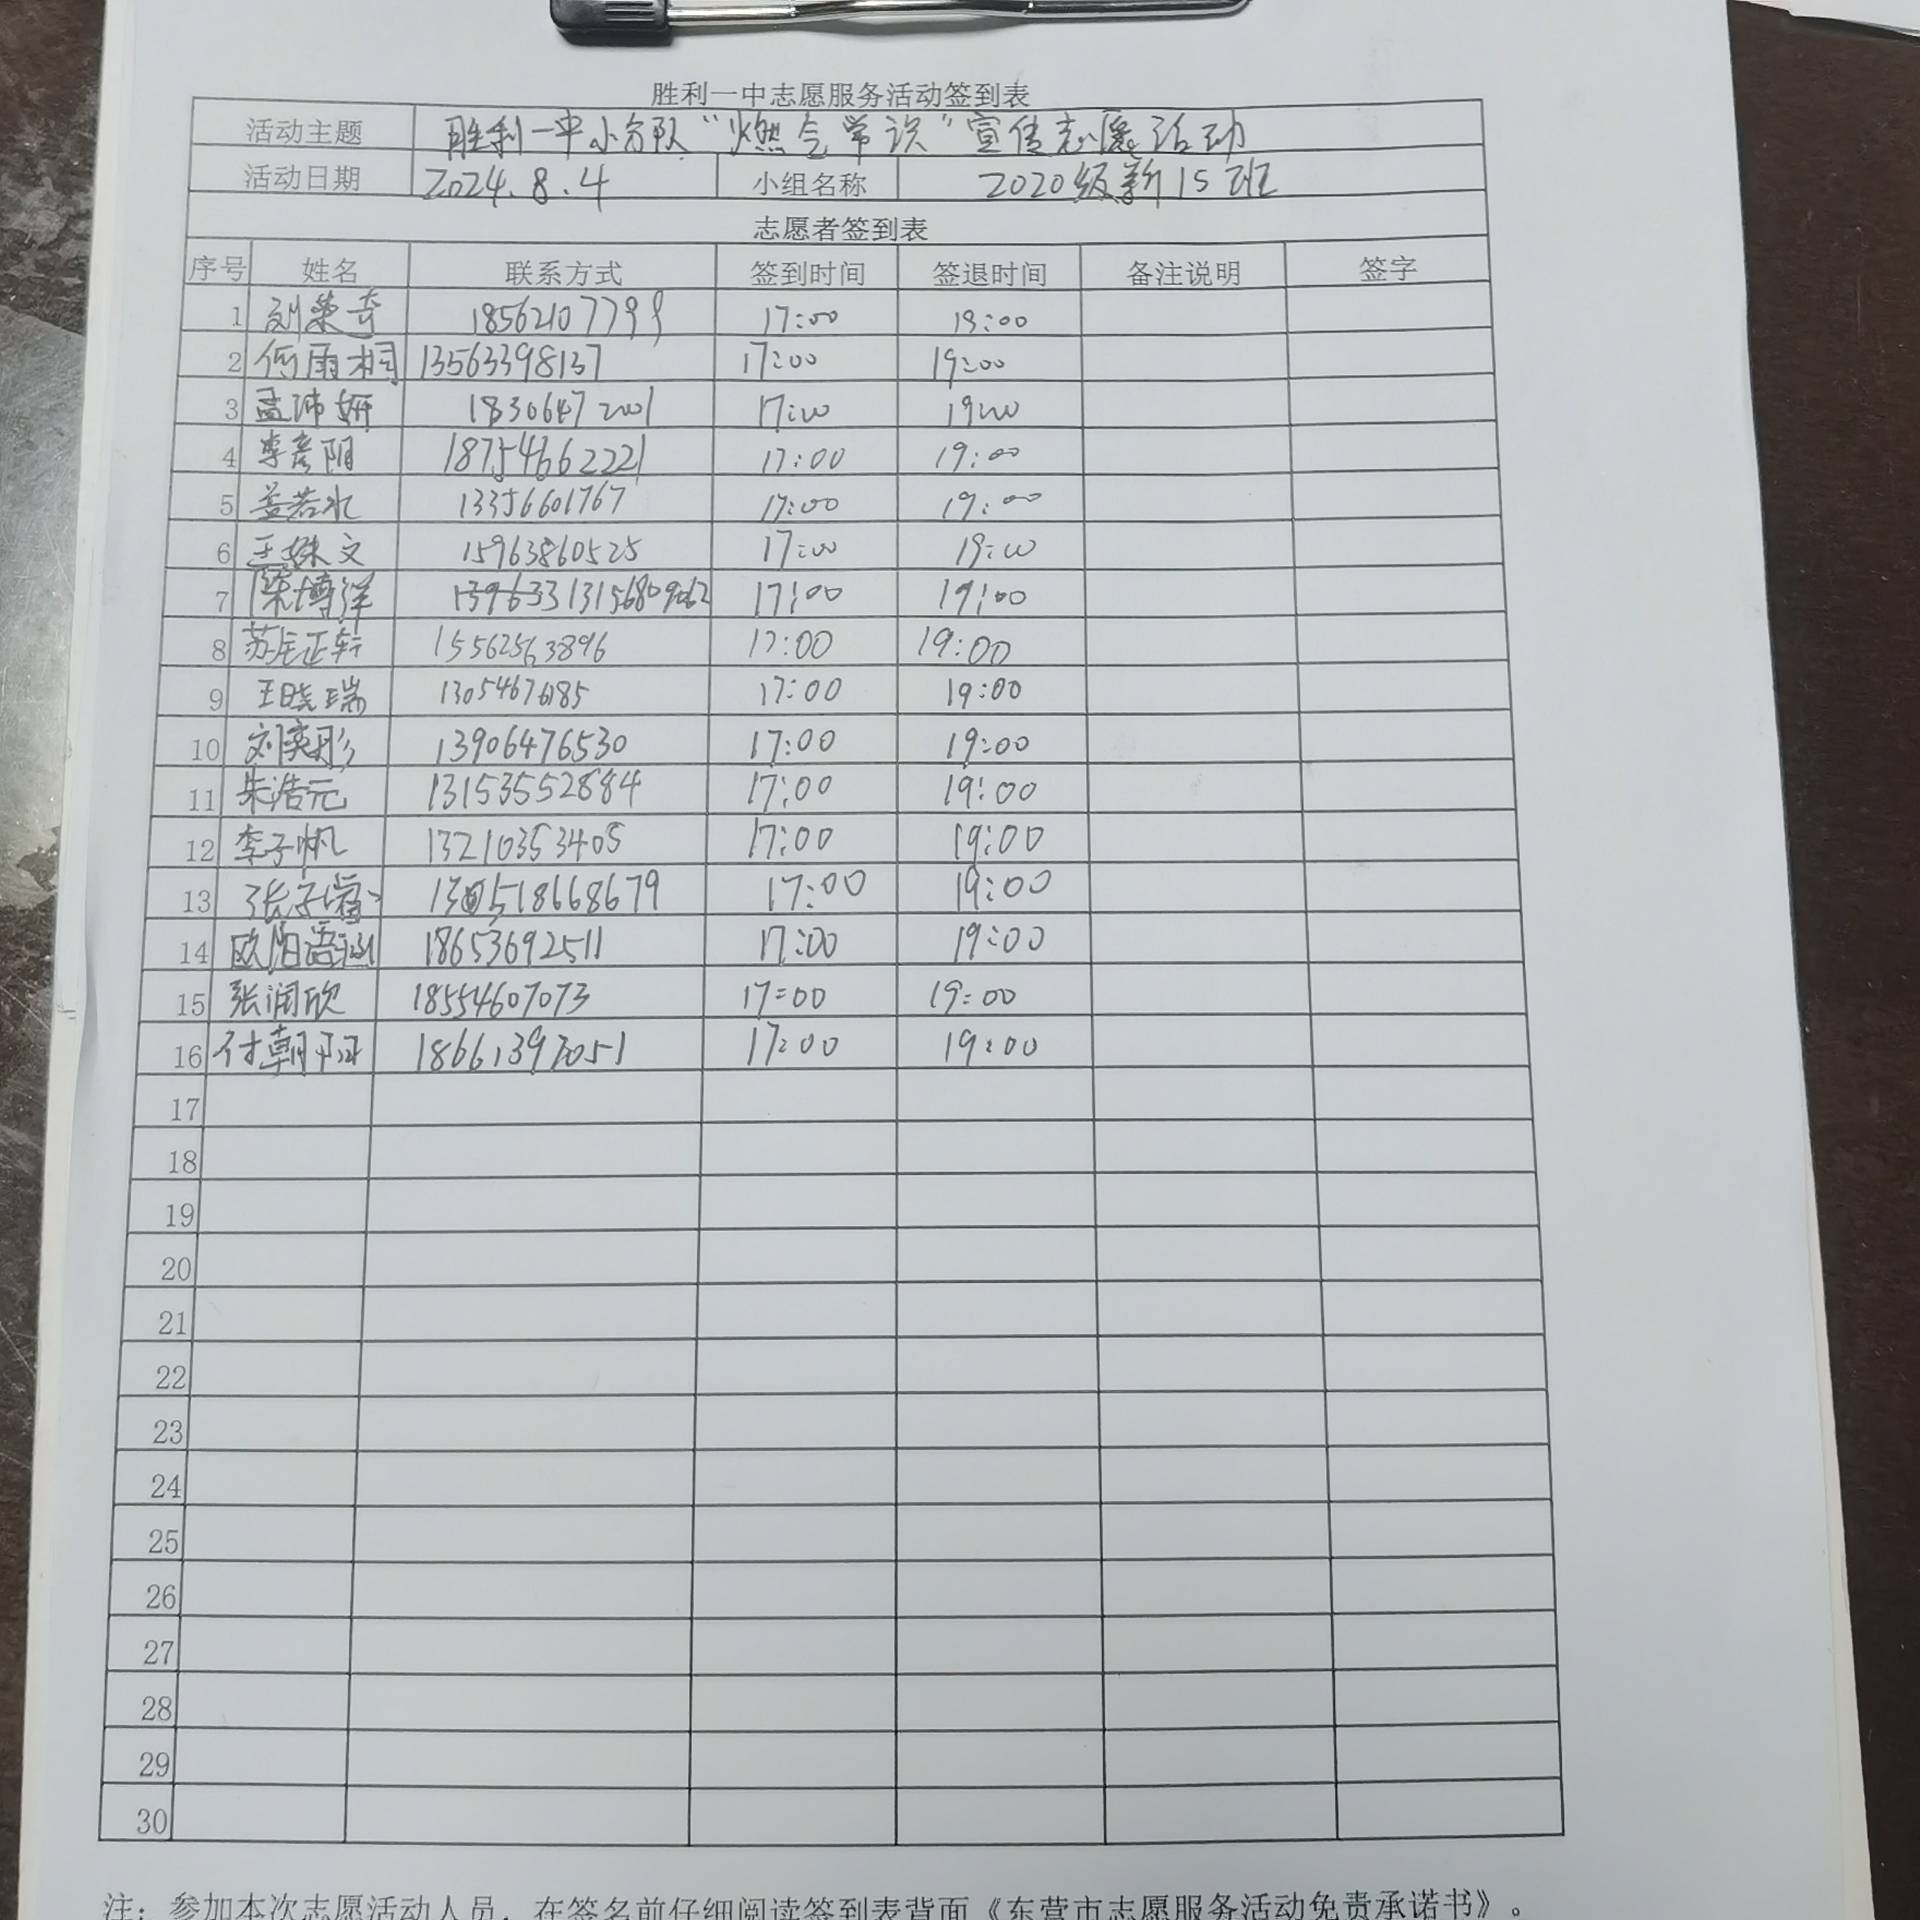 胜利一中志愿服务活动签到表
活动主题 胜利一中小分队“燃气常识”宣传志愿活动
活动日期 2024.8.4 小组名称 2020级新15班
志愿者签到表
序号 姓名 联系方式 签到时间 签退时间 备注说明 签字
1 刘荣奇 18562107799 17:00 19:00
2 何雨桐 13563398137 17:00 19:00
3 孟沛妍 18306472001 17:00 19:00
4 李彦阳 18754662221 17:00 19:00
5 盖若水 13356601767 17:00 19:00
6 王姝文 15963860525 17:00 19:00
7 陈博洋 156809062 17:00 19:00
8 苏正轩 15562563896 17:00 19:00
9 王晓瑞 13054676185 17:00 19:00
10 刘奕彤 13906476530 17:00 19:00
11 朱浩元 13153552884 17:00 19:00
12 李子帆 13210353405 17:00 19:00
13 张子 17:00 19:00
14 欧阳语涵 18653692511 17:00 19:00
15 张润欣 18554607073 17:00 19:00
16 付朝阳 18661397051 17:00 19:00
17
18
19
20
21
22
23
24
25
26
27
28
29
30
注：参加本次志愿活动人员，在签名前仔细阅读签到表背面《东营市志愿服务活动免责承诺书》。